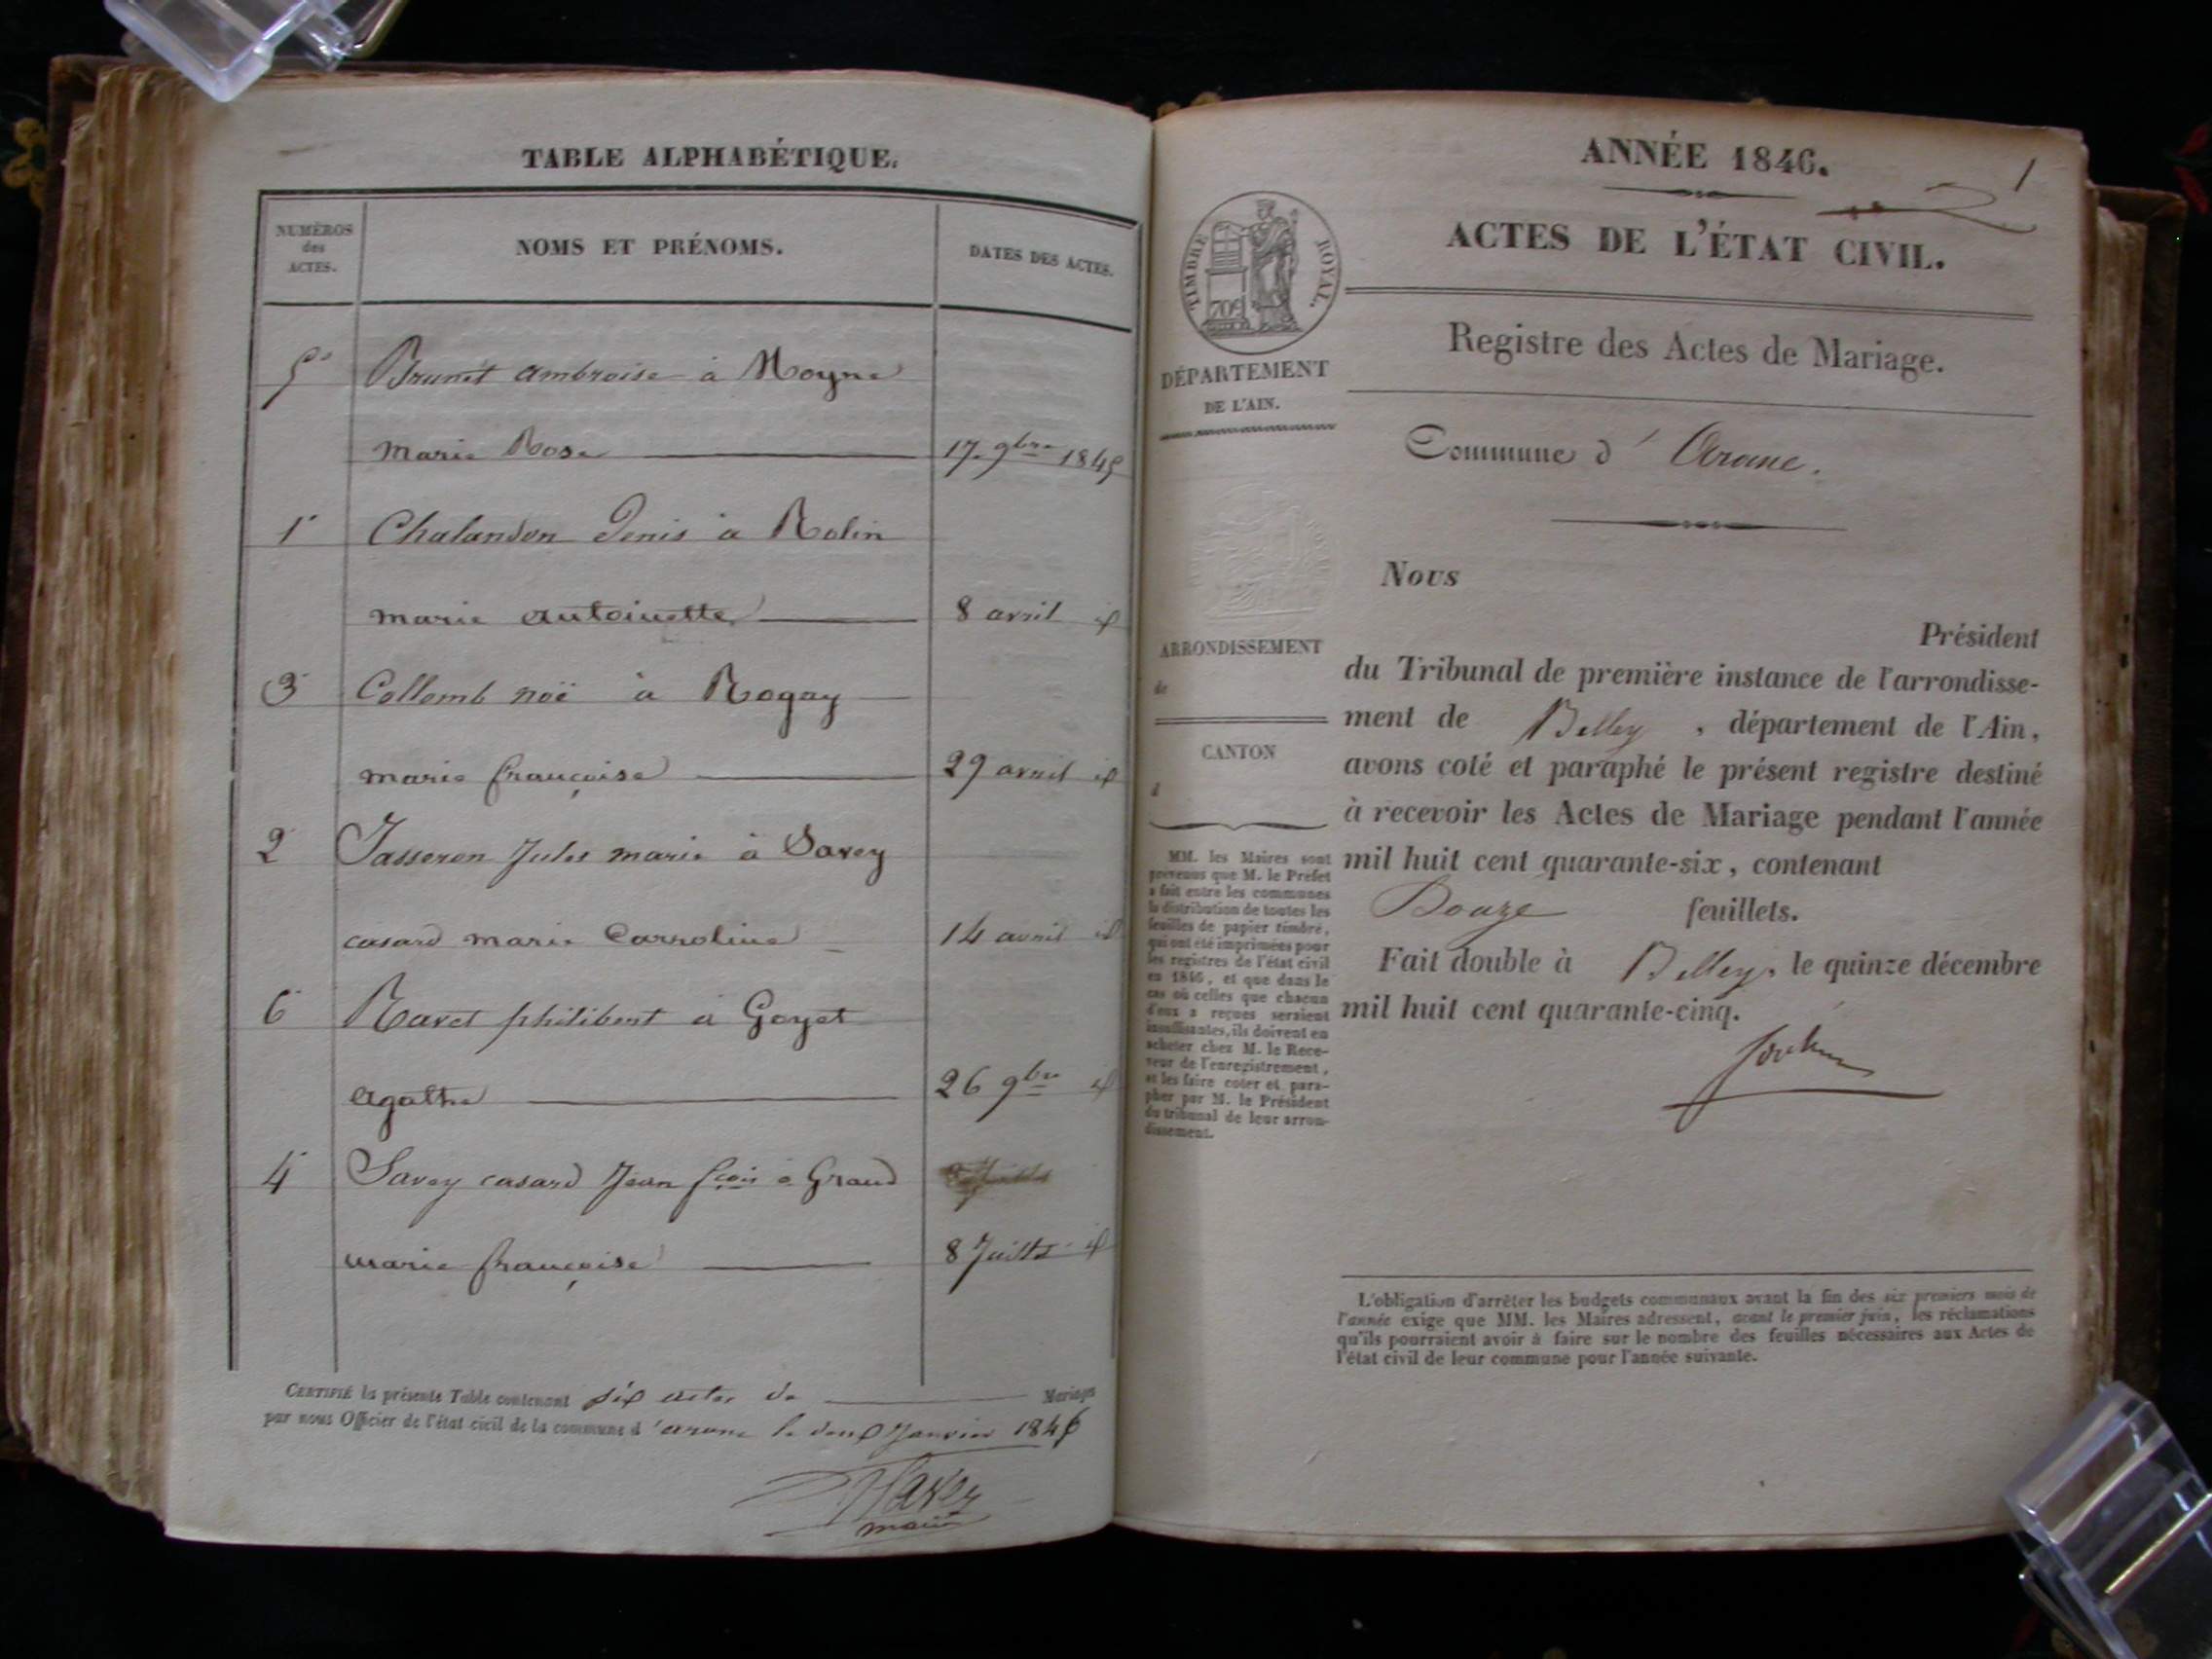 TABLE ALPHABÉTIQUE.
NUMÉROS
des
ACTES.
NOMS ET PRÉNOMS.
DATES DES ACTES.
5 Brunet ambroise à Moyne
marie Rose 17 9bre 1845
1 Chalandon Denis à Rolin
marie antoinette 8 avril id
3 Collomb noë à Rogay
marie françoise 29 avril id
2 Jasseron Jules marie à Savey
casard marie Carroline 14 avril id
6 Ravet philibert à Goyet
agathe 26 9bre id
4 Savey casard Jean fçois à Graud
marie françoise 8 Juillet id
CERTIFIÉ la présente Table contenant six actes de Mariages
par nous Officier de l'état civil de la commune d'arane le deux Janvier 1846
Savey
maire
ANNÉE 1846.
1
ACTES DE L'ÉTAT CIVIL.
TIMBRE ROYAL.
709
Registre des Actes de Mariage.
DÉPARTEMENT
DE L'AIN.
Commune d'Arane.
Nous
Président
ARRONDISSEMENT
de
du Tribunal de première instance de l'arrondisse-
ment de Belley, département de l'Ain,
CANTON
d
avons coté et paraphé le présent registre destiné
à recevoir les Actes de Mariage pendant l'année
mil huit cent quarante-six, contenant
Douze feuillets.
Fait double à Belley, le quinze décembre
mil huit cent quarante-cinq.
MM. les Maires sont
prévenus que M. le Préfet
a fait entre les communes
la distribution de toutes les
feuilles de papier timbré,
qui ont été imprimées pour
les registres de l'état civil
en 1846, et que dans le
cas où celles que chacun
d'eux a reçues seraient
insuffisantes, ils doivent en
acheter chez M. le Rece-
veur de l'enregistrement,
et les faire coter et para-
pher par M. le Président
du tribunal de leur arron-
dissement.
L'obligation d'arrêter les budgets communaux avant la fin des six premiers mois de
l'année exige que MM. les Maires adressent, avant le premier juin, les réclamations
qu'ils pourraient avoir à faire sur le nombre des feuilles nécessaires aux Actes de
l'état civil de leur commune pour l'année suivante.